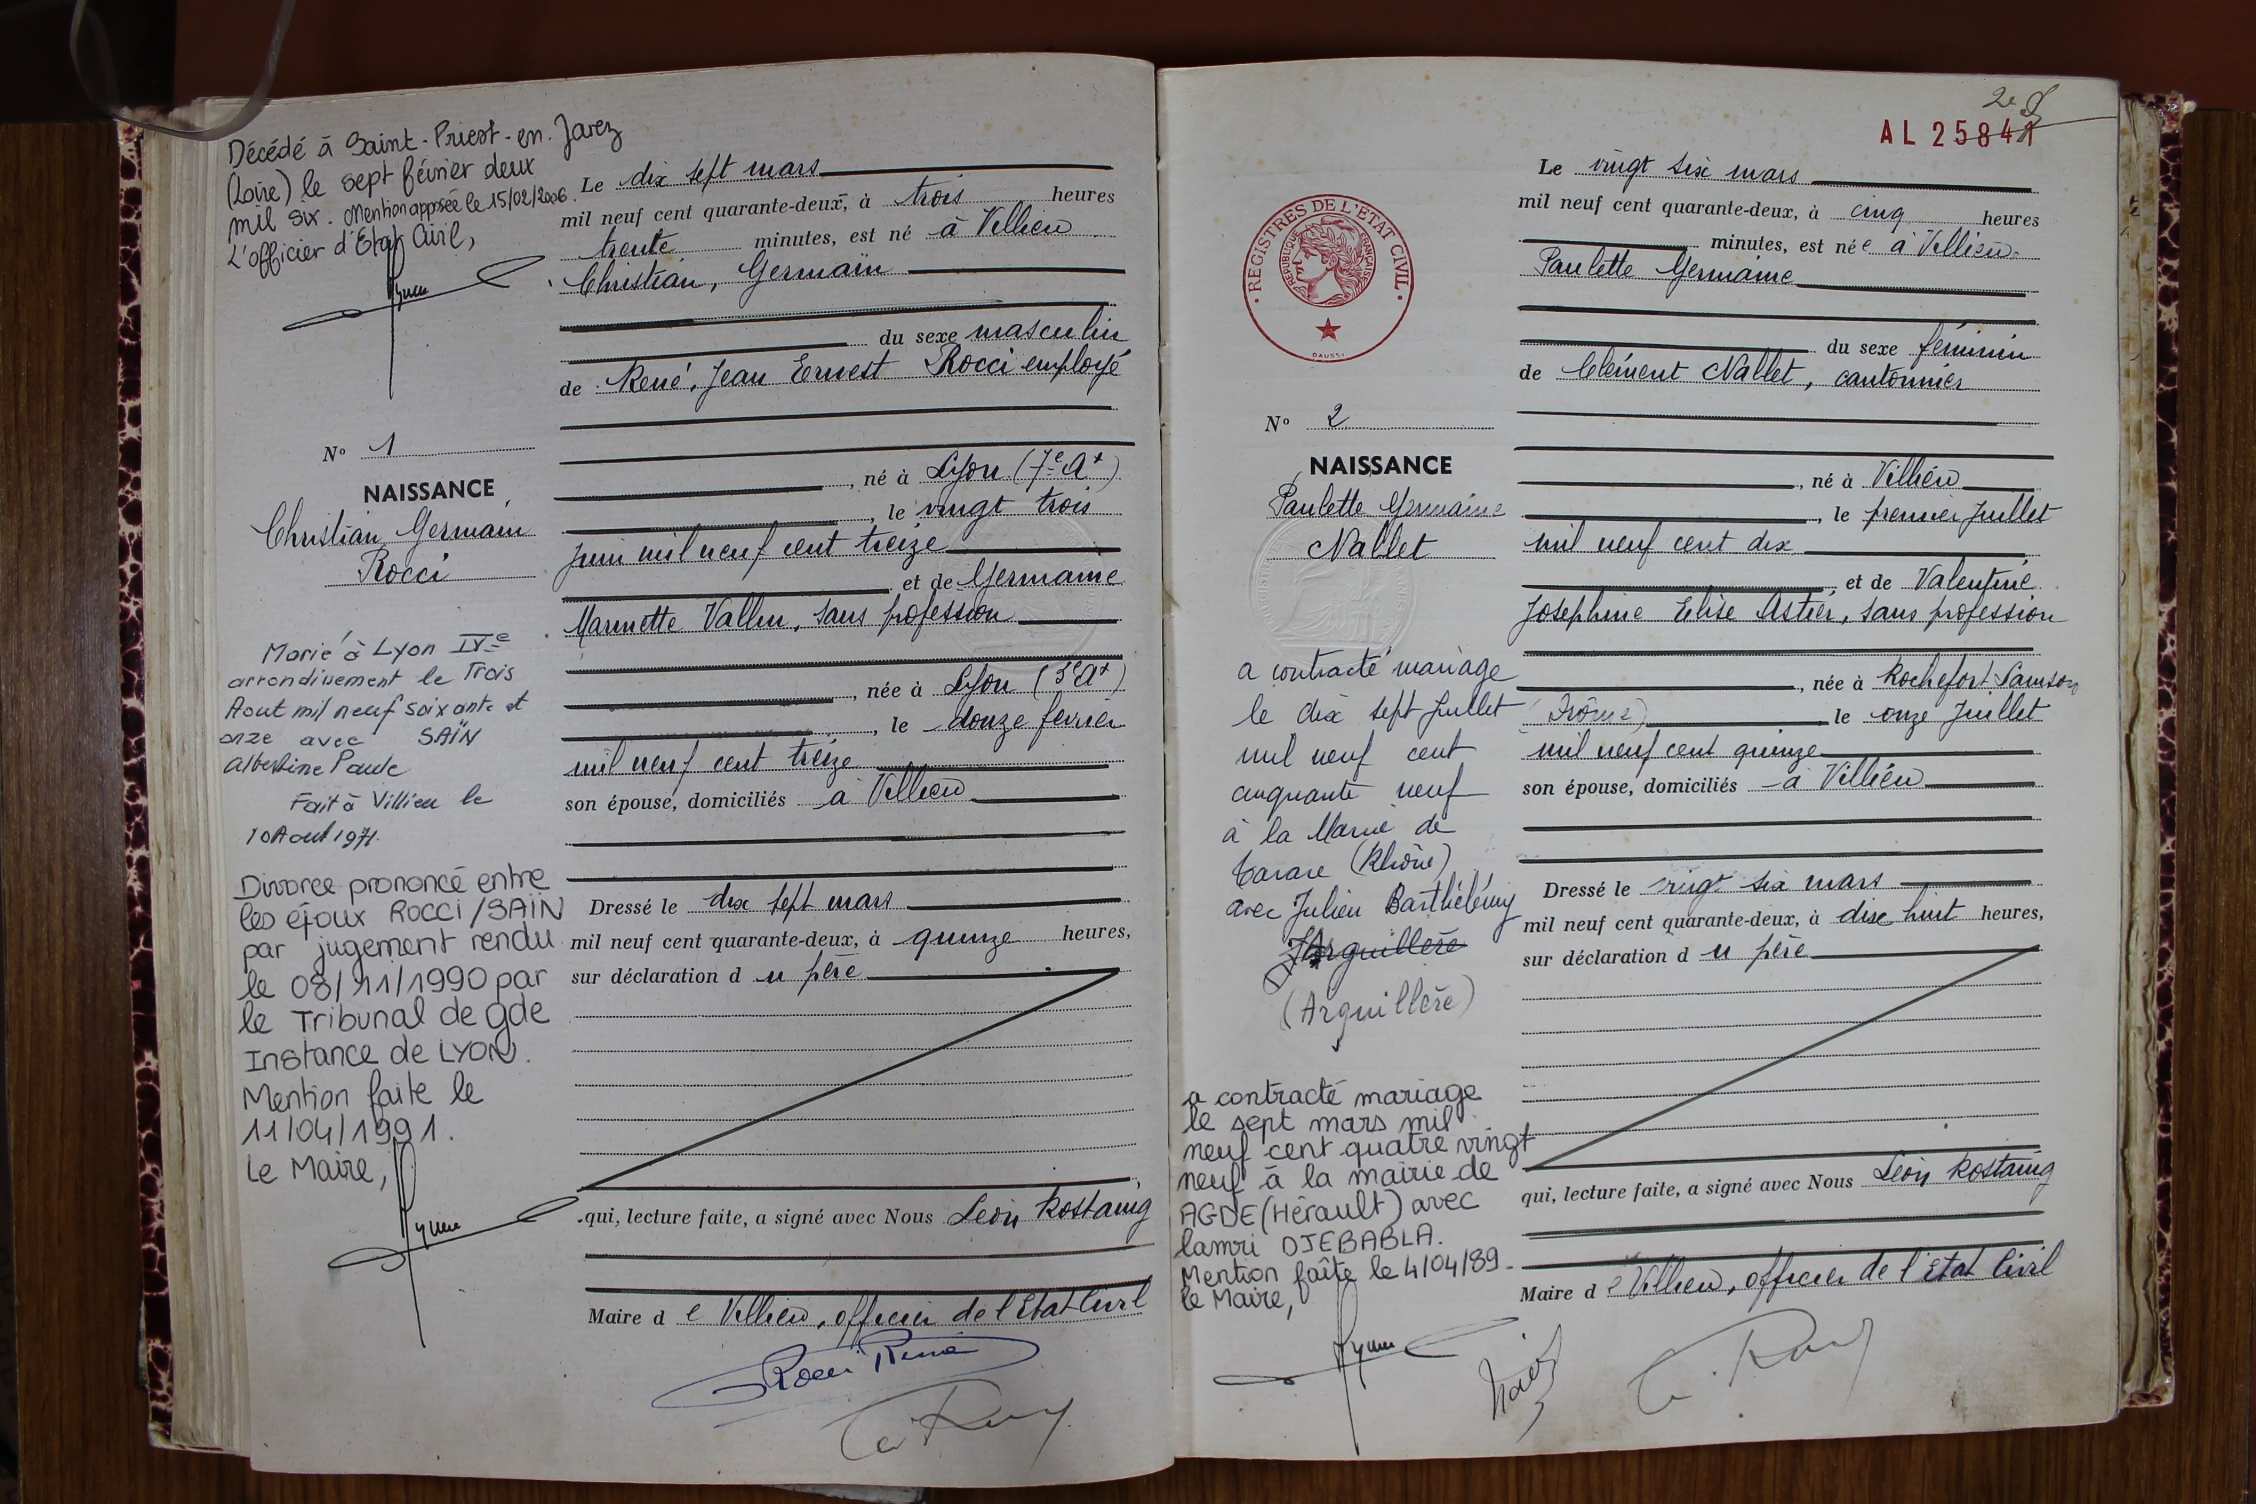 Décédé à Saint-Priest-en-Jarez
(Loire) le sept février deux
mil six. Mention apposée le 15/02/2006.
L'officier d'Etat Civil,
Le dix sept mars
mil neuf cent quarante-deux, à trois heures
trente minutes, est né à Villieu
Christian, Germain
du sexe masculin
de René, Jean Ernest Rocci employé
, né à Lyon (7e At)
, le vingt trois
juin mil neuf cent treize
et de Germaine
Marinette Vallin, sans profession
, née à Lyon (3e At)
, le douze février
mil neuf cent treize
son épouse, domiciliés à Villieu
Dressé le dix sept mars
mil neuf cent quarante-deux, à quinze heures,
sur déclaration du père
qui, lecture faite, a signé avec Nous Léon Rostaing
Maire de Villieu, officier de l'Etat Civil
Rocci René
No 1
NAISSANCE
Christian Germain
Rocci
Marié à Lyon IVe
arrondissement le Trois
Aout mil neuf soixante et
onze avec SAÏN
Albertine Paule
Fait à Villieu le
10 Aout 1971.
Divorce prononcé entre
les époux ROCCI/SAÏN
par jugement rendu
le 08/11/1990 par
le Tribunal de gde
Instance de LYON.
Mention faite le
11/04/1991.
Le Maire,
AL 2584
REGISTRES DE L'ETAT CIVIL
REPUBLIQUE FRANÇAISE
DAUSSI
No 2
NAISSANCE
Paulette Germaine
Nallet
a contracté mariage
le dix sept Juillet
mil neuf cent
cinquante neuf
à la Mairie de
Tarare (Rhône)
avec Julien Barthélémy
Arguillère
(Arguillère)
a contracté mariage
le sept mars mil
neuf cent quatre vingt
neuf à la mairie de
AGDE (Hérault) avec
lamri DJEBABLA.
Mention faîte le 4/04/89.
le Maire,
Le vingt six mars
mil neuf cent quarante-deux, à cinq heures
minutes, est née à Villieu
Paulette Germaine
du sexe féminin
de Clément Nallet, cantonnier
, né à Villieu
, le premier Juillet
mil neuf cent dix
et de Valentine
Josephine Elise Astier, sans profession
, née à Rochefort-Samson
(Drôme) le onze Juillet
mil neuf cent quinze
son épouse, domiciliés à Villieu
Dressé le vingt six mars
mil neuf cent quarante-deux, à dix huit heures,
sur déclaration du père
qui, lecture faite, a signé avec Nous Léon Rostaing
Maire de Villieu, officier de l'Etat Civil